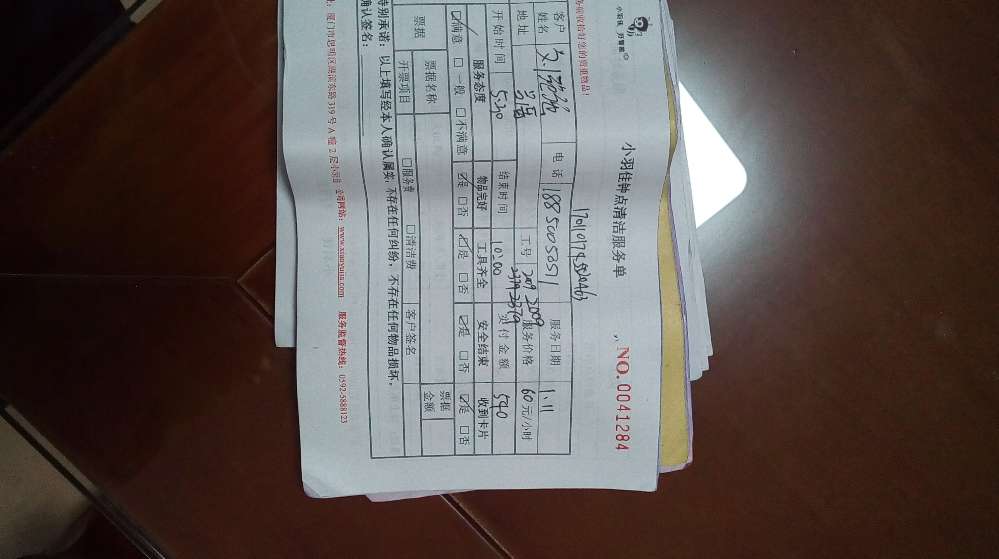 小羽佳 万智能
小羽佳钟点清洁服务单
NO.0041284
务前请收拾好您的贵重物品!
客户姓名 电话 18850053571 服务日期 1.11
地址 工号 2009 2009 服务价格 60元/小时
开始时间 5:30 结束时间 10:00 实付金额 540
服务态度 物品完好 工具齐全 安全结束 收到卡片
☑满意 □一般 □不满意 ☑是 □否 ☑是 □否 ☑是 □否 ☑是 □否
票据 票据名称 票据金额
开票项目 □服务费 □清洁费 客户签名
特别承诺:以上填写经本人确认属实,不存在任何纠纷,不存在任何物品损坏。
确认签名:
址:厦门市思明区湖滨东路319号A幢2层小羽佳 公司网站:www.xiaoyujia.com 服务监督热线:0592-5888123